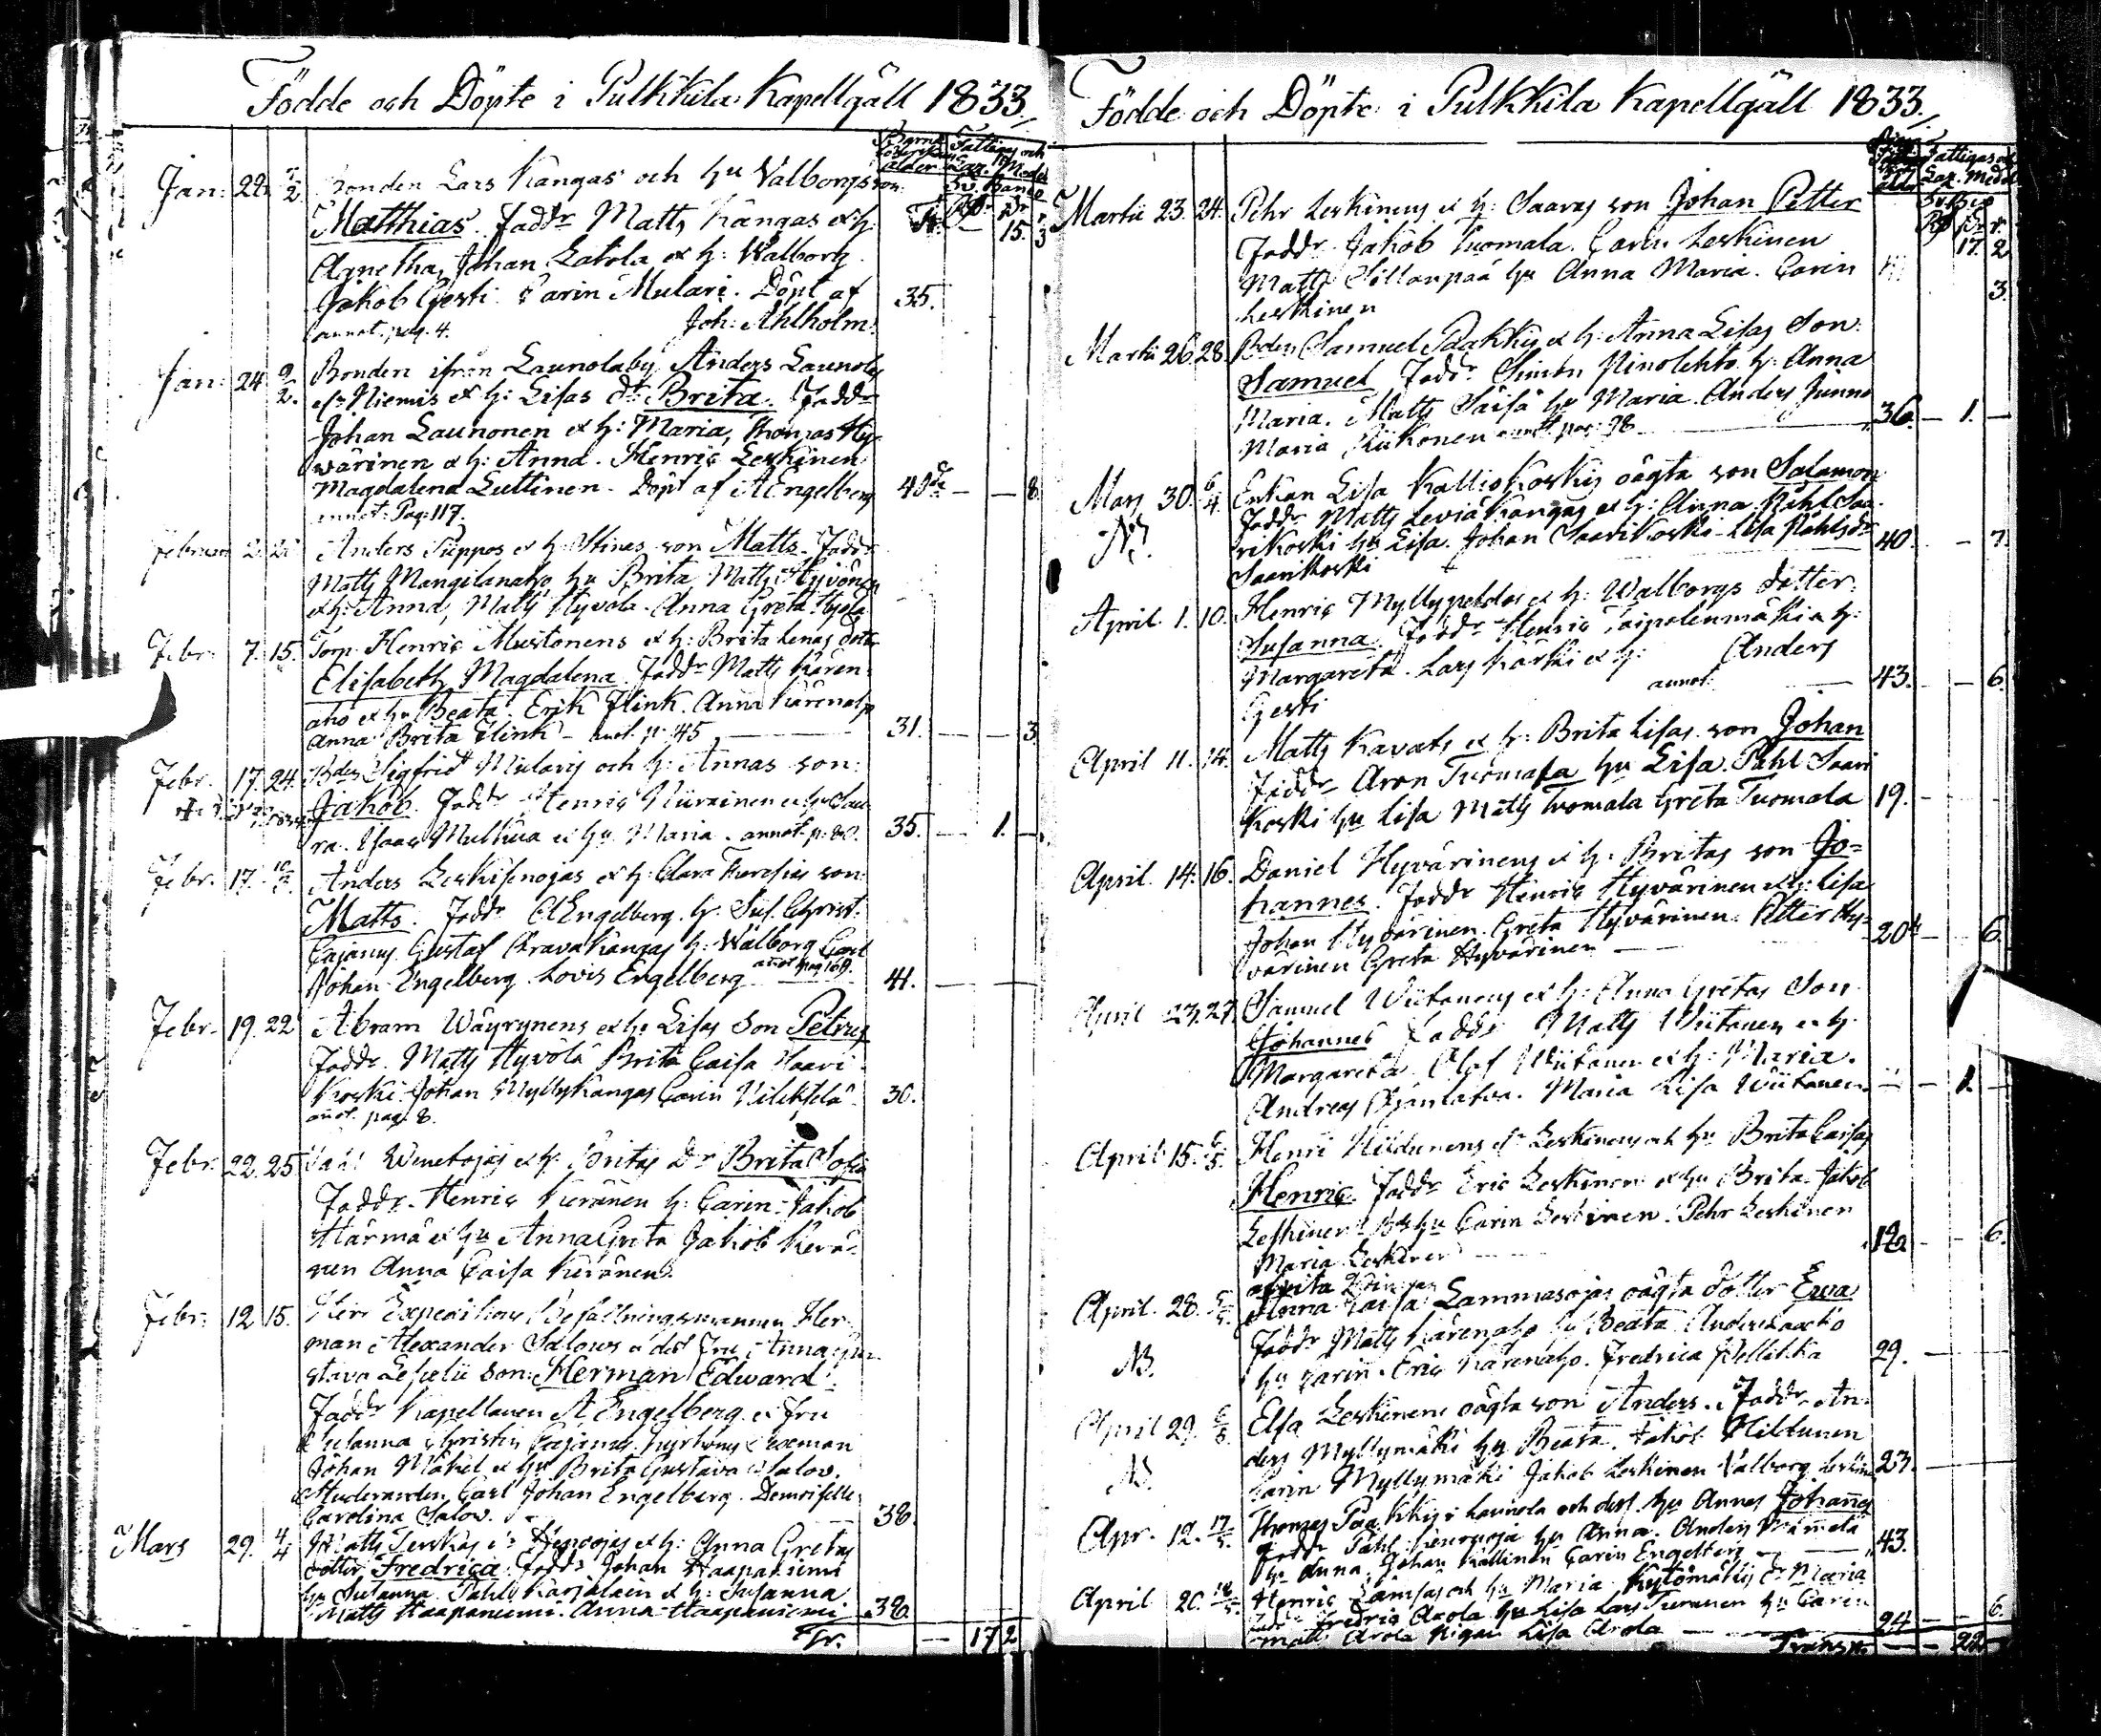 Födde och Döpte i Pulkkila Kapellgäll 1833.
Jan: 22. Bonden Lars Kangas och hu Valborgs son
Matthias. Faddr Matts Kangas et h: 15. 3
Agnetha, Johan Latola et h: Walborg.
Jakob Gesti Carin Mulari. Döpt af 35.
annot. pag. 4. Joh: Ahlholm.
Jan: 24 Bonden ifrån Launolaby Anders Launolas
Niemis et h: Lisas dr Brita. Faddr
Johan Launonen et h: Maria, Thomas Hy-
värinen et h: Anna. Henric Leskinen
Magdalena Luttinen. Döpt af A Engelberg 40 — — 8.
annot: Pag: 117.
Anders Piippos et h: Stinas son Matts. Faddr
Matts Mangilanaho hu Brita, Matts Hyvönen
et h: Anna, Matts Hyvölä. Anna Greta Hyvölä
Febr: 7. 15. Torp. Henric Mustonens et h: Brita Lenas dotter
Elisabeth Magdalena. Faddr Matts Kären-
aho et hu Beata. Erik Flink. Anna Kärenaho
Anna Brita Flink — annot. p. 45 — 31. — — 3
Febr. 17. 24. Bden Sigfrid Mularis och h: Annas son:
Jakob. Faddr Henric Niiranen et hu Sa-
ra. Isaac Mulkua et hu Maria. annot. p. 35. — 1. —
Febr. 17. Anders Leskisenojas et h: Clara son
Matts. Faddr A Engelberg. h: Sus. Christ.
Cajanus Gustaf Kravakangas h: Walborg Carl
Johan Engelberg Lovis Engelberg annot. pag 169. 41. — —
Febr. 19. 22 Abram Wäyrynens et h: Lisas Son Petrus
Faddr. Matts Hyvölä Brita Caisa Saari-
koski Johan Myllykangas Carin 36.
annot. pag. 8.
Febr. 22. 25 Pahl Wenetojas et h: Britas Dr Brita Sofia
Faddr. Henric Keränen h: Carin. Jakob
Härmä et hu Anna Greta Jakob Kerä-
nen Anna Caisa Keränen.
Febr: 12 15. Herr Expeditions Befallningsmannen Her-
man Alexander Salovs et des Fru Anna Gu-
stava Lepelii Son: Herman Edward.
Faddr Kapellanen A Engelberg et fru
Susanna Christin Cajanus.
Johan Mäkel et hu Brita Gustava Salov.
Studeranden Carl Johan Engelberg. Demoiselle
Carolina Salov. 38.
Mars 29. 4/4 Matts et h: Anna Gretas
dotter Fredrica. Faddr Johan Haapaniemi
hu Susanna. Pahl Karjalain et h: Susanna
Matts Haapaniemi. Anna Haapaniemi 38.
Tr. — 17 2
Födde och Döpte i Pulkkila Kapellgäll 1833.
Martii 23. 24. Pehr Leskinens et h: Saaras son Johan Petter
Faddr. Jakob Tuomala. Carin Leskinen 17. 2
Matts Sillanpää hu Anna Maria. Carin 3.
Leskinen
Martii 26. 28. Bden Samuel Paakkis et h: Anna Lisas Son:
Samuel Faddr Simon Ninolehto h: Anna
Maria. Matts Saisa hu Maria. Anders Junno
Maria Kukonen annot pag: 98. 36. — 1. —
Mars 30. 6/4. Enkan Lisa Kalliokoskis oägta son Salamon
Faddr Matts Leviäkangas et h: Anna. Pahl Saa-
NB. rikoski hu Lisa. Johan Saarikoski Lisa Pahlsdr 40. — 7.
Saarikoski
April. 1. 10. Henric Myllypeldos et h: Walborgs dotter
Susanna Faddr Henric Taipalenmäki et h:
Margareta. Lars Kärki et h: Anders
Gesti annot. 43. — — 6.
April 11. 14. Matts Kavats et h: Brita Lisas son Johan
Faddr Aron Tuomala hu Lisa. Pahl Saari
koski hu Lisa Matts Tuomala Greta Tuomala 19. —
April. 14. 16. Daniel Hyvärinens et h: Britas son Jo=
hannes. Faddr Henric Hyvärinen et h: Lisa
Johan Hyvärinen. Greta Hyvärinen. Petter Hy-
värinen Greta Hyvärinen — 20 — 6.
April 23. 27. Samuel Wiitanens et h: Anna Gretas Son
Johannes Faddr Matts Wiitanen et h:
Margareta Olof Wiitanen et h: Maria.
Andreas Maria Lisa Wiitanen. — — 1. —
April 15. 6/5. Henric Leskinens och hu Brita Caisas
Henric. Faddr Eric Leskinen et hu Brita. Jakob
Leskinen hu Carin Leskinen. Pehr Leskinen
Maria Leskinen — — 6.
April. 28. Anna Caisa Lammasojas oägta dotter Eva
Faddr Matts Kärenaho hu Beata. Anders
NB. hu Carin. Eric Kärenaho. Fredrica Pellikka 29. —
April 29. Elsa Leskinens oägta son Anders. Faddr An-
ders Myllymäki hu Beata. Jakob Hildunen
N. Carin Myllymäki Jakob Leskinen Valborg Leskinen 23. —
Apr. 12. 17/5. Thomas Paakkis i Launola och dess hu Annas Johannes
Faddr Pahl hu Anna. Anders
hu Anna. Johan Kallinen Carin Engelberg 43.
April 20. Henric Lämsas och hu Maria Kytömäkis dr Maria
Faddr Fredric Arola hu Lisa Lars hu Carin
Matts Arola Pigan Lisa Arola — 24 — — 6.
Transp. — — 22